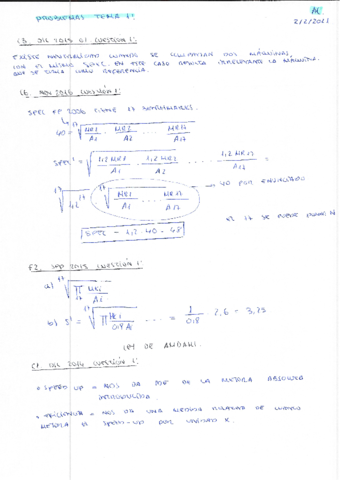 PROBLEMAS TEMA 1:
AC
2/2/2021
C3. DIC 2015 C1 CUESTIÓN 1:
EXISTE CUANDO SE COMPARAN DOS MÁQUINAS,
CON EL MISMO SPEC. EN ESTE CASO RESULTA IRRELEVANTE LA MÁQUINA
QUE SE USARA COMO REFERENCIA.
C6. NOV 2016 CUESTIÓN 1:
SPEC FP 2006 TIENE 17 BENCHMARKS.
40 = 17√ NR1/A1 · NR2/A2 ... NR17/A17
SPEC' = √ 1,2 NR1/A1 · 1,2 NR2/A2 ... 1,2 NR17/A17 =
17√ 1,2^17 17√ NR1/A1 ... NR17/A17 → 40 POR ENUNCIADO
EL 17 SE PUEDE
SPEC = 1,2 · 40 = 48
F2. SEP 2015 CUESTIÓN 1:
a) 17√ π NRi/Ai
b) S' = 17√ π NRi/0,8 Ai ... = 1/0,8 2,6 = 3,25
LEY DE AMDAHL.
C1. DIC 2014 CUESTIÓN 1:
• SPEED UP = NOS DA DE LA MEJORA ABSOLUTA
INTRODUCIDA.
• EFICIENCIA = NOS DA UNA MEDIDA RELATIVA DE CUANTO
MEJORA EL SPEED-UP POR UNIDAD K.